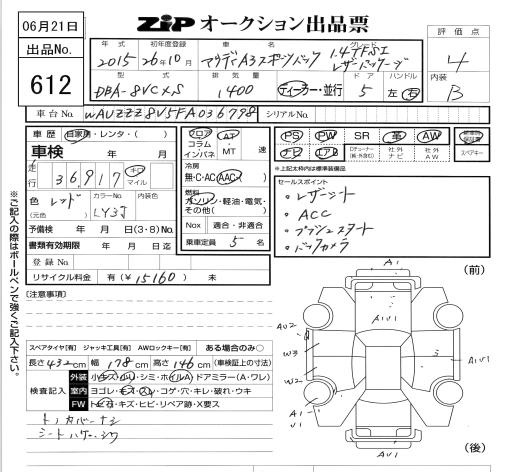 06月21日
ZiP オークション出品票
評価点
4
内装
B
出品No.
612
年式 初年度登録 車名 グレード
2015 26年10月 アウディA3スポーツバック 1.4TFSI レザーパッケージ
型式 排気量 ドア ハンドル
DBA-8VCXS 1400 ディーラー・並行 5 左・右
車台No. WAUZZZ8V5FA036798 シリアルNo.
車歴 自家用・レンタ・( )
車検
走行 36,917 キロ マイル
色 レッド カラーNo. LY3J 内装色
(元色)
予備検 年 月 日(3・8)No.
書類有効期限 年 月 日迄
登録No
リサイクル料金 有(¥15160) 未
フロア コラム インパネ AT MT 速
冷房
無・C・AC・AAC
燃料
ガソリン・軽油・電気・その他( )
Nox 適合・非適合
乗車定員 5 名
PS PW SR 革 AW
ナビ エアB 社外ナビ 社外AW スペアキー
*上記太枠内は標準装備品。
セールスポイント
・レザーシート
・ACC
・プッシュスタート
・バックカメラ
※ご記入の際はボールペンで強くご記入下さい。
[注意事項]
スペアタイヤ[有] ジャッキ工具[有] AWロックキー[有] ある場合のみ○
長さ432cm 幅178cm 高さ146cm (車検証上の寸法)
検査記入
外装 小キズ・小凹・シミ・ホイルA ドアミラー(A・ワレ)
室内 ヨゴレ・キズ・スレ・コゲ・穴・キレ・破れ・ウキ
FW トビ石・キズ・ヒビ・リペア跡・X要ス
トノカバーナシ
シートハゲ・シワ
(前)
A1
A1U1
AU2
W3
W2
A1
U1
A1U1
AU1
(後)